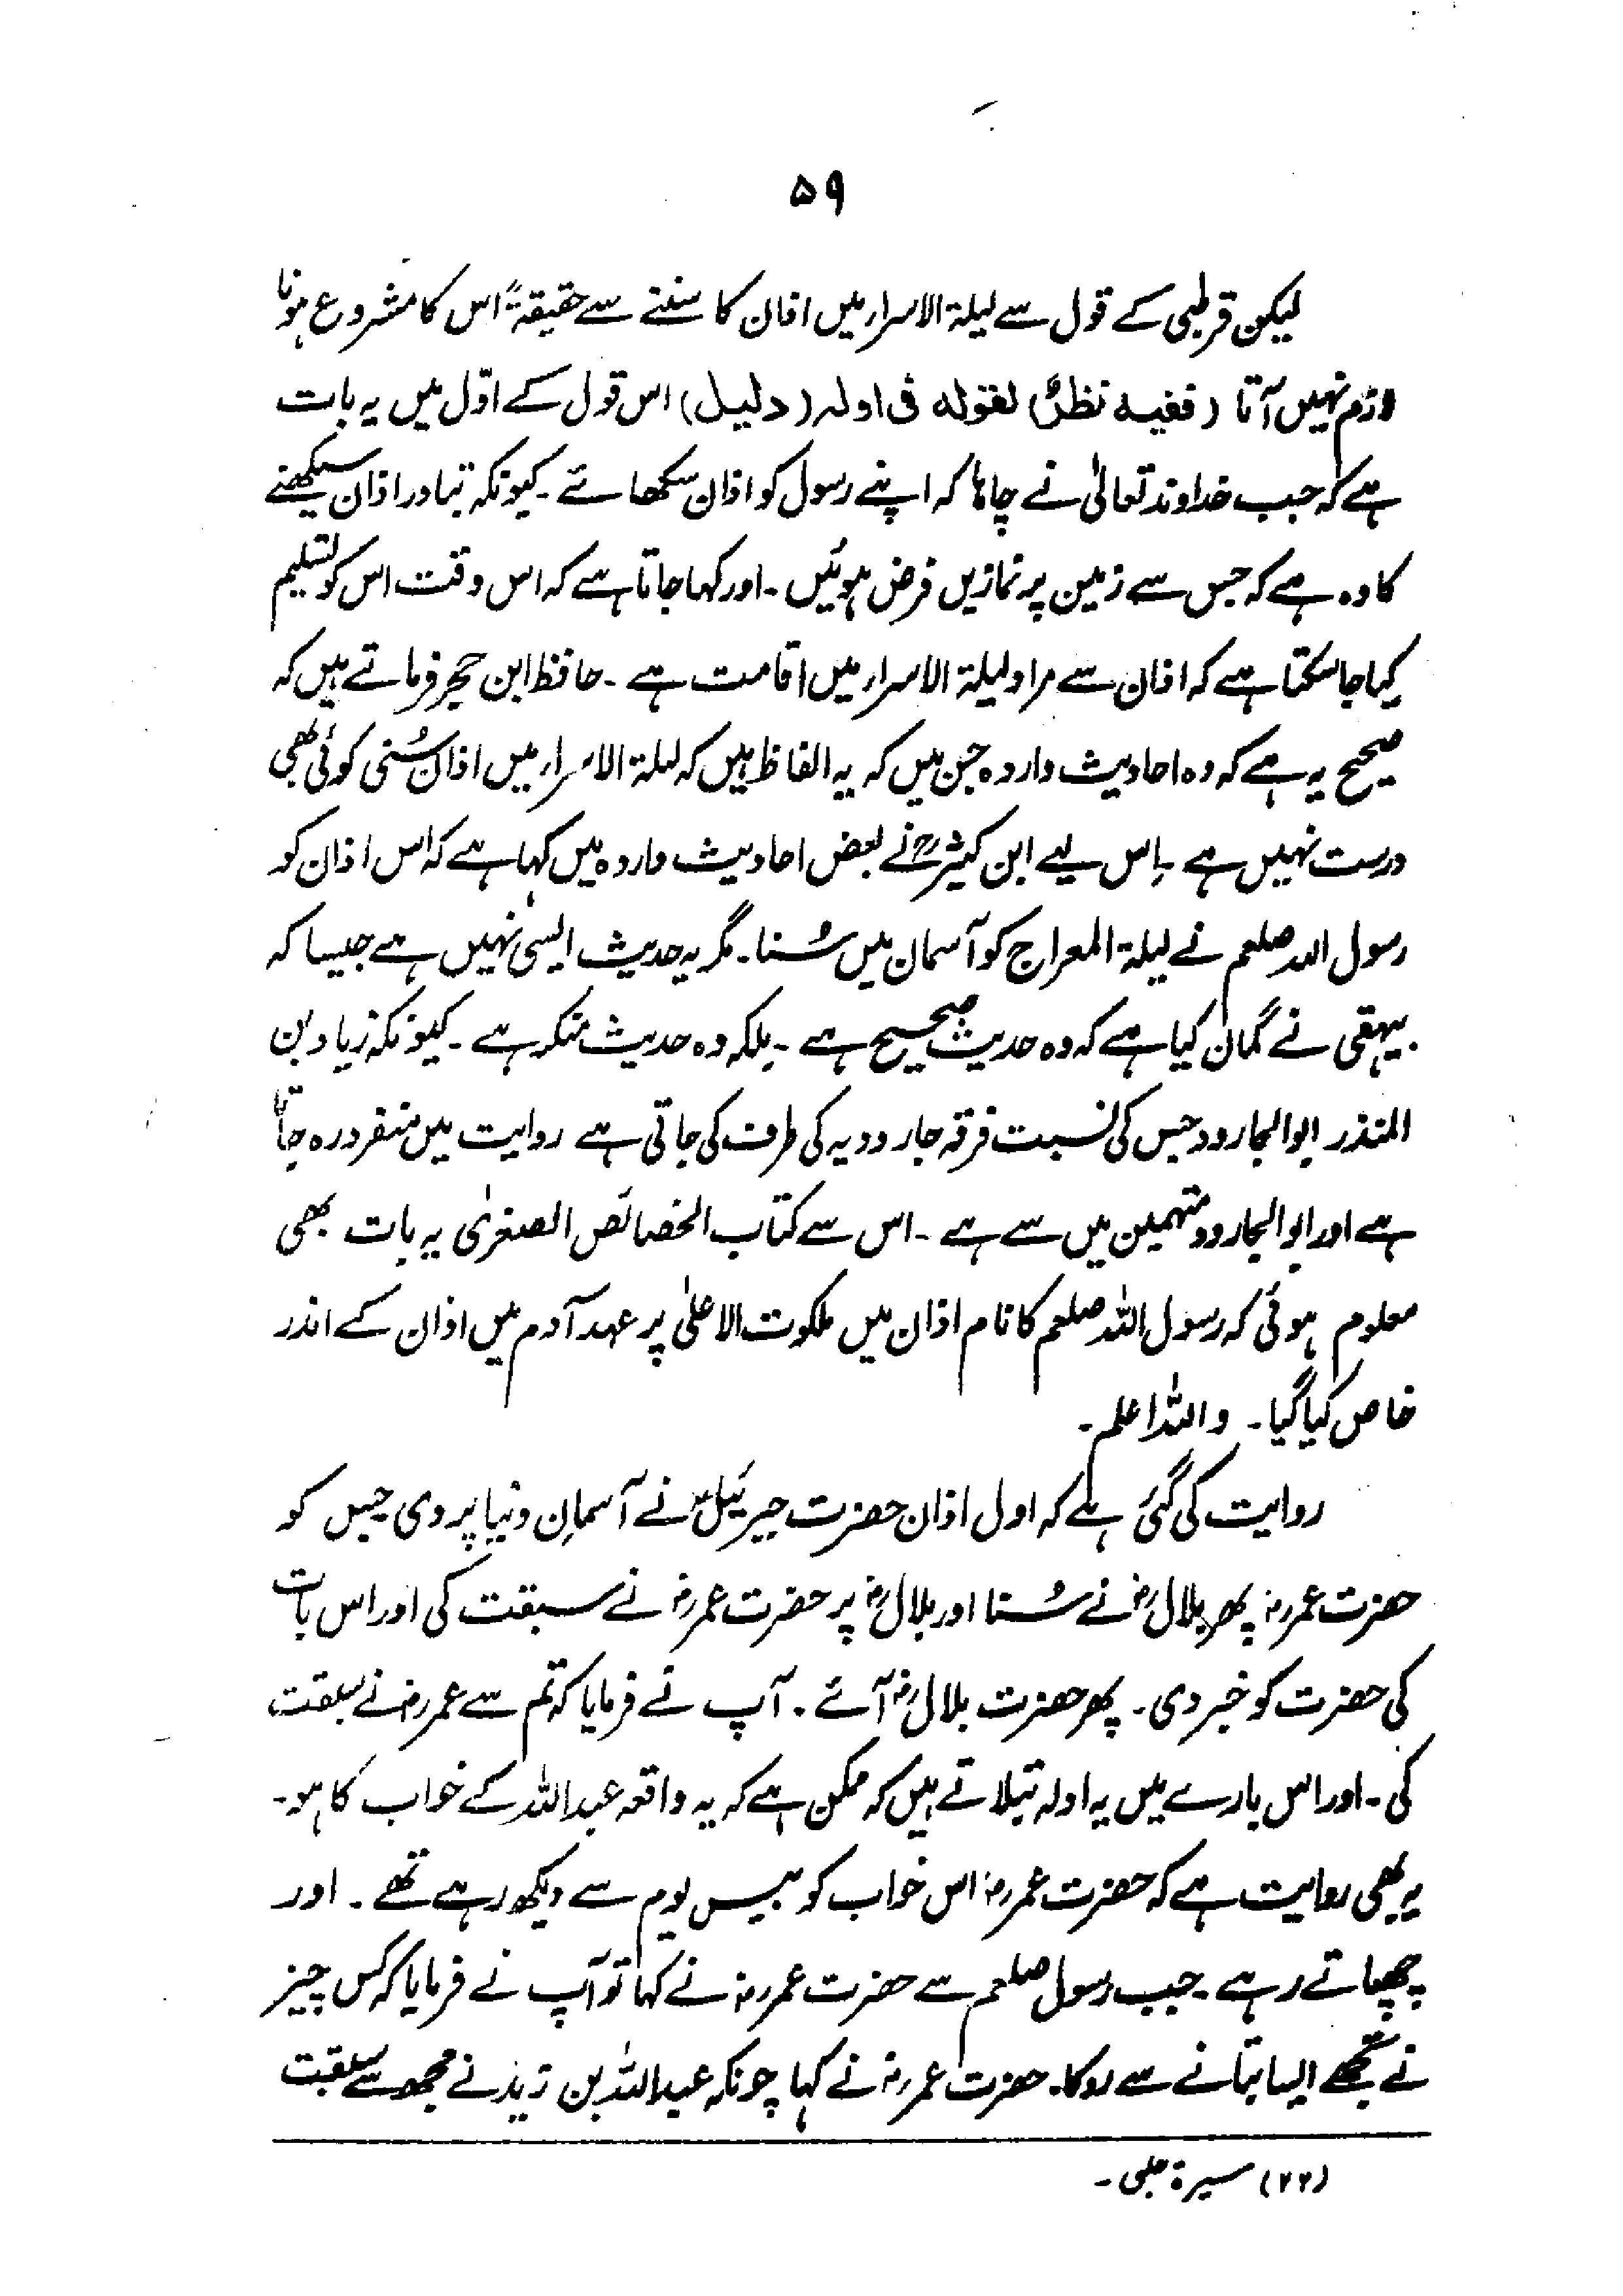 ۵۹
لیکن قرطبی کے قول سے لیلۃ الاسراء میں اذان کا سننے سے حقیقۃً اس کا مشروع ہونا
لازم نہیں آتا (ففیہ نظرٌ) لقولہ فی اولہ (دلیل) اس قول کے اوّل میں یہ بات
ہے کہ جب خداوند تعالیٰ نے چاہا کہ اپنے رسول کو اذان سکھائے ۔ کیونکہ تبادر اذان سیکھنے
کا وہ ہے کہ جس سے زمین پر نمازیں فرض ہوئیں ۔ اور کہا جاتا ہے کہ اس وقت اس کو تسلیم
کیا جا سکتا ہے کہ اذان سے مراد لیلۃ الاسراء میں اقامت ہے ۔ حافظ ابن حجر فرماتے ہیں کہ
صحیح یہ ہے کہ وہ احادیث واردہ جن میں کہ یہ الفاظ ہیں کہ لیلۃ الاسراء میں اذان سُنی کوئی بھی
درست نہیں ہے ۔ اِس لیے ابن کثیرؒ نے بعض احادیث واردہ میں کہا ہے کہ اس اذان کو
رسول اللہ صلعم نے لیلۃ المعراج کو آسمان میں سُنا ۔ مگر یہ حدیث ایسی نہیں ہے جیسا کہ
بیہقی نے گمان کیا ہے کہ وہ حدیث صحیح ہے ۔ بلکہ وہ حدیث منکر ہے ۔ کیونکہ زیاد بن
المنذر ابو الجارود جس کی نسبت فرقہ جارودیہ کی طرف کی جاتی ہے روایت میں منفرد رہ جاتا
ہے اور ابو الجارود متہمین میں سے ہے ۔ اس سے کتاب الخصائص الصغریٰ یہ بات بھی
معلوم ہوئی کہ رسول اللہ صلعم کا نام اذان میں ملکوت الاعلیٰ پر عہد آدم میں اذان کے اندر
خاص کیا گیا ۔ واللہ اعلم ۔
روایت کی گئی ہے کہ اول اذان حضرت جبرئیلؑ نے آسمانِ دنیا پر دی جس کو
حضرت عمرؓ پھر بلالؓ نے سُنا اور بلالؓ پر حضرت عمرؓ نے سبقت کی اور اس بات
کی حضرت کو خبر دی ۔ پھر حضرت بلالؓ آئے ۔ آپ نے فرمایا کہ تم سے عمرؓ نے سبقت
کی ۔ اور اس بارے میں یہ ادلہ بتلاتے ہیں کہ ممکن ہے کہ یہ واقعہ عبداللہ کے خواب کا ہو ۔
یہ بھی روایت ہے کہ حضرت عمرؓ اس خواب کو بیس یوم سے دیکھ رہے تھے ۔ اور
چھپاتے رہے ۔ جب رسول صلعم سے حضرت عمرؓ نے کہا تو آپ نے فرمایا کہ کس چیز
نے تجھے ایسا بتانے سے روکا ۔ حضرت عمرؓ نے کہا چونکہ عبداللہ بن زید نے مجھ سے سبقت
(۲۲) سیرۃ حلبی ۔